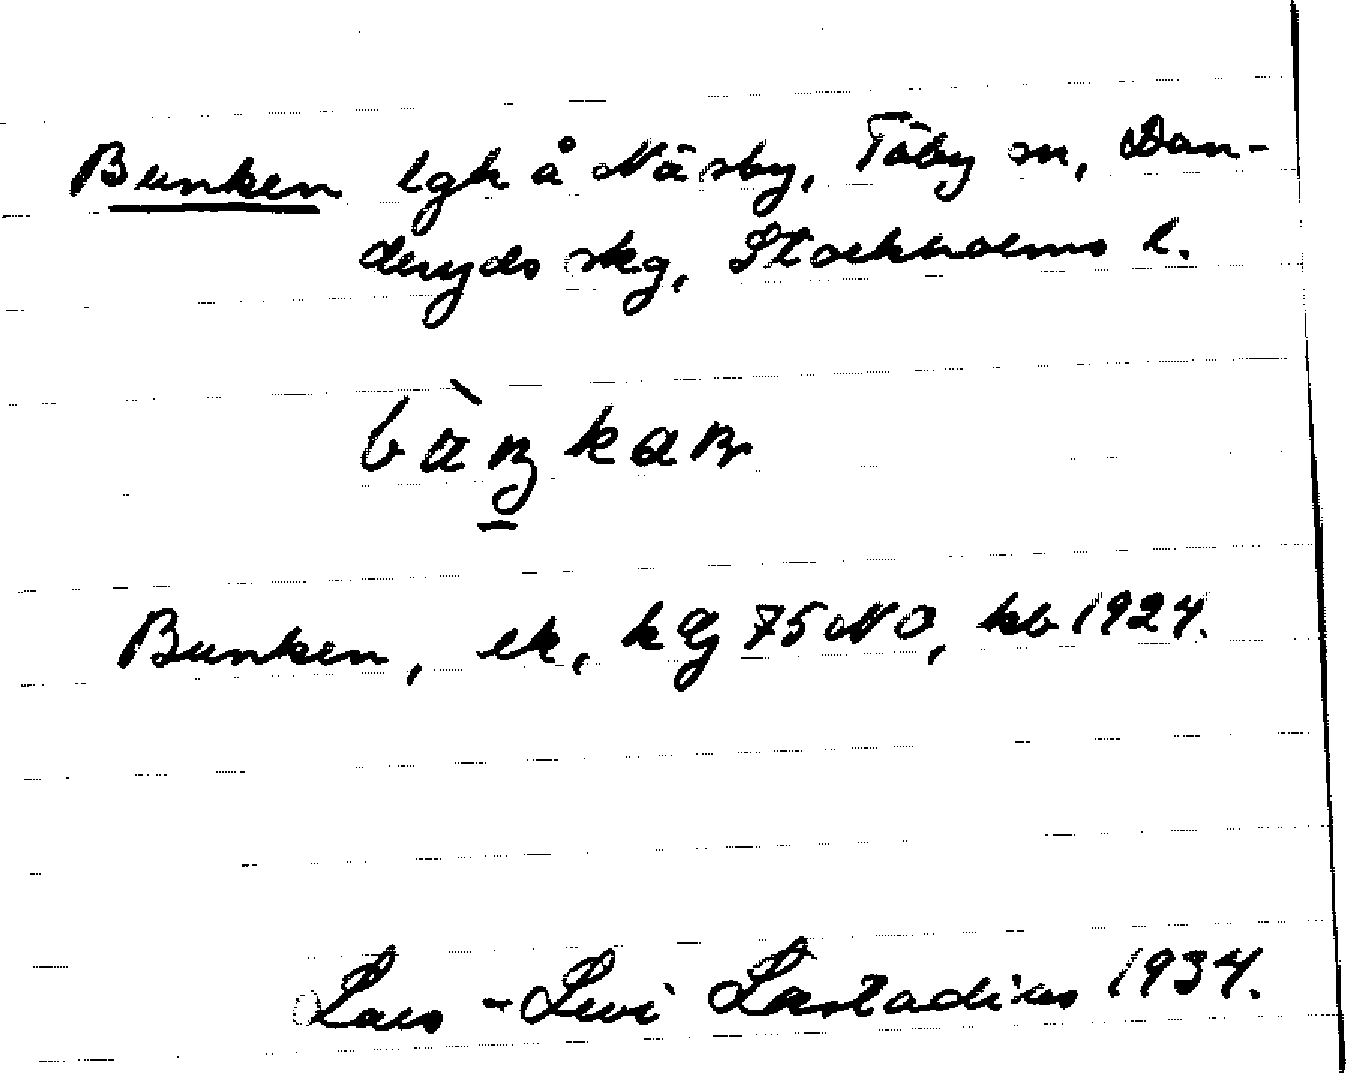 Bunken lgh å Näsby, Täby sn, Dan-
deryds skg, Stockholms l.
Bunken, ek, kbg 75 NO, kb 1924.
Lars-Levi Læstadius 1934.